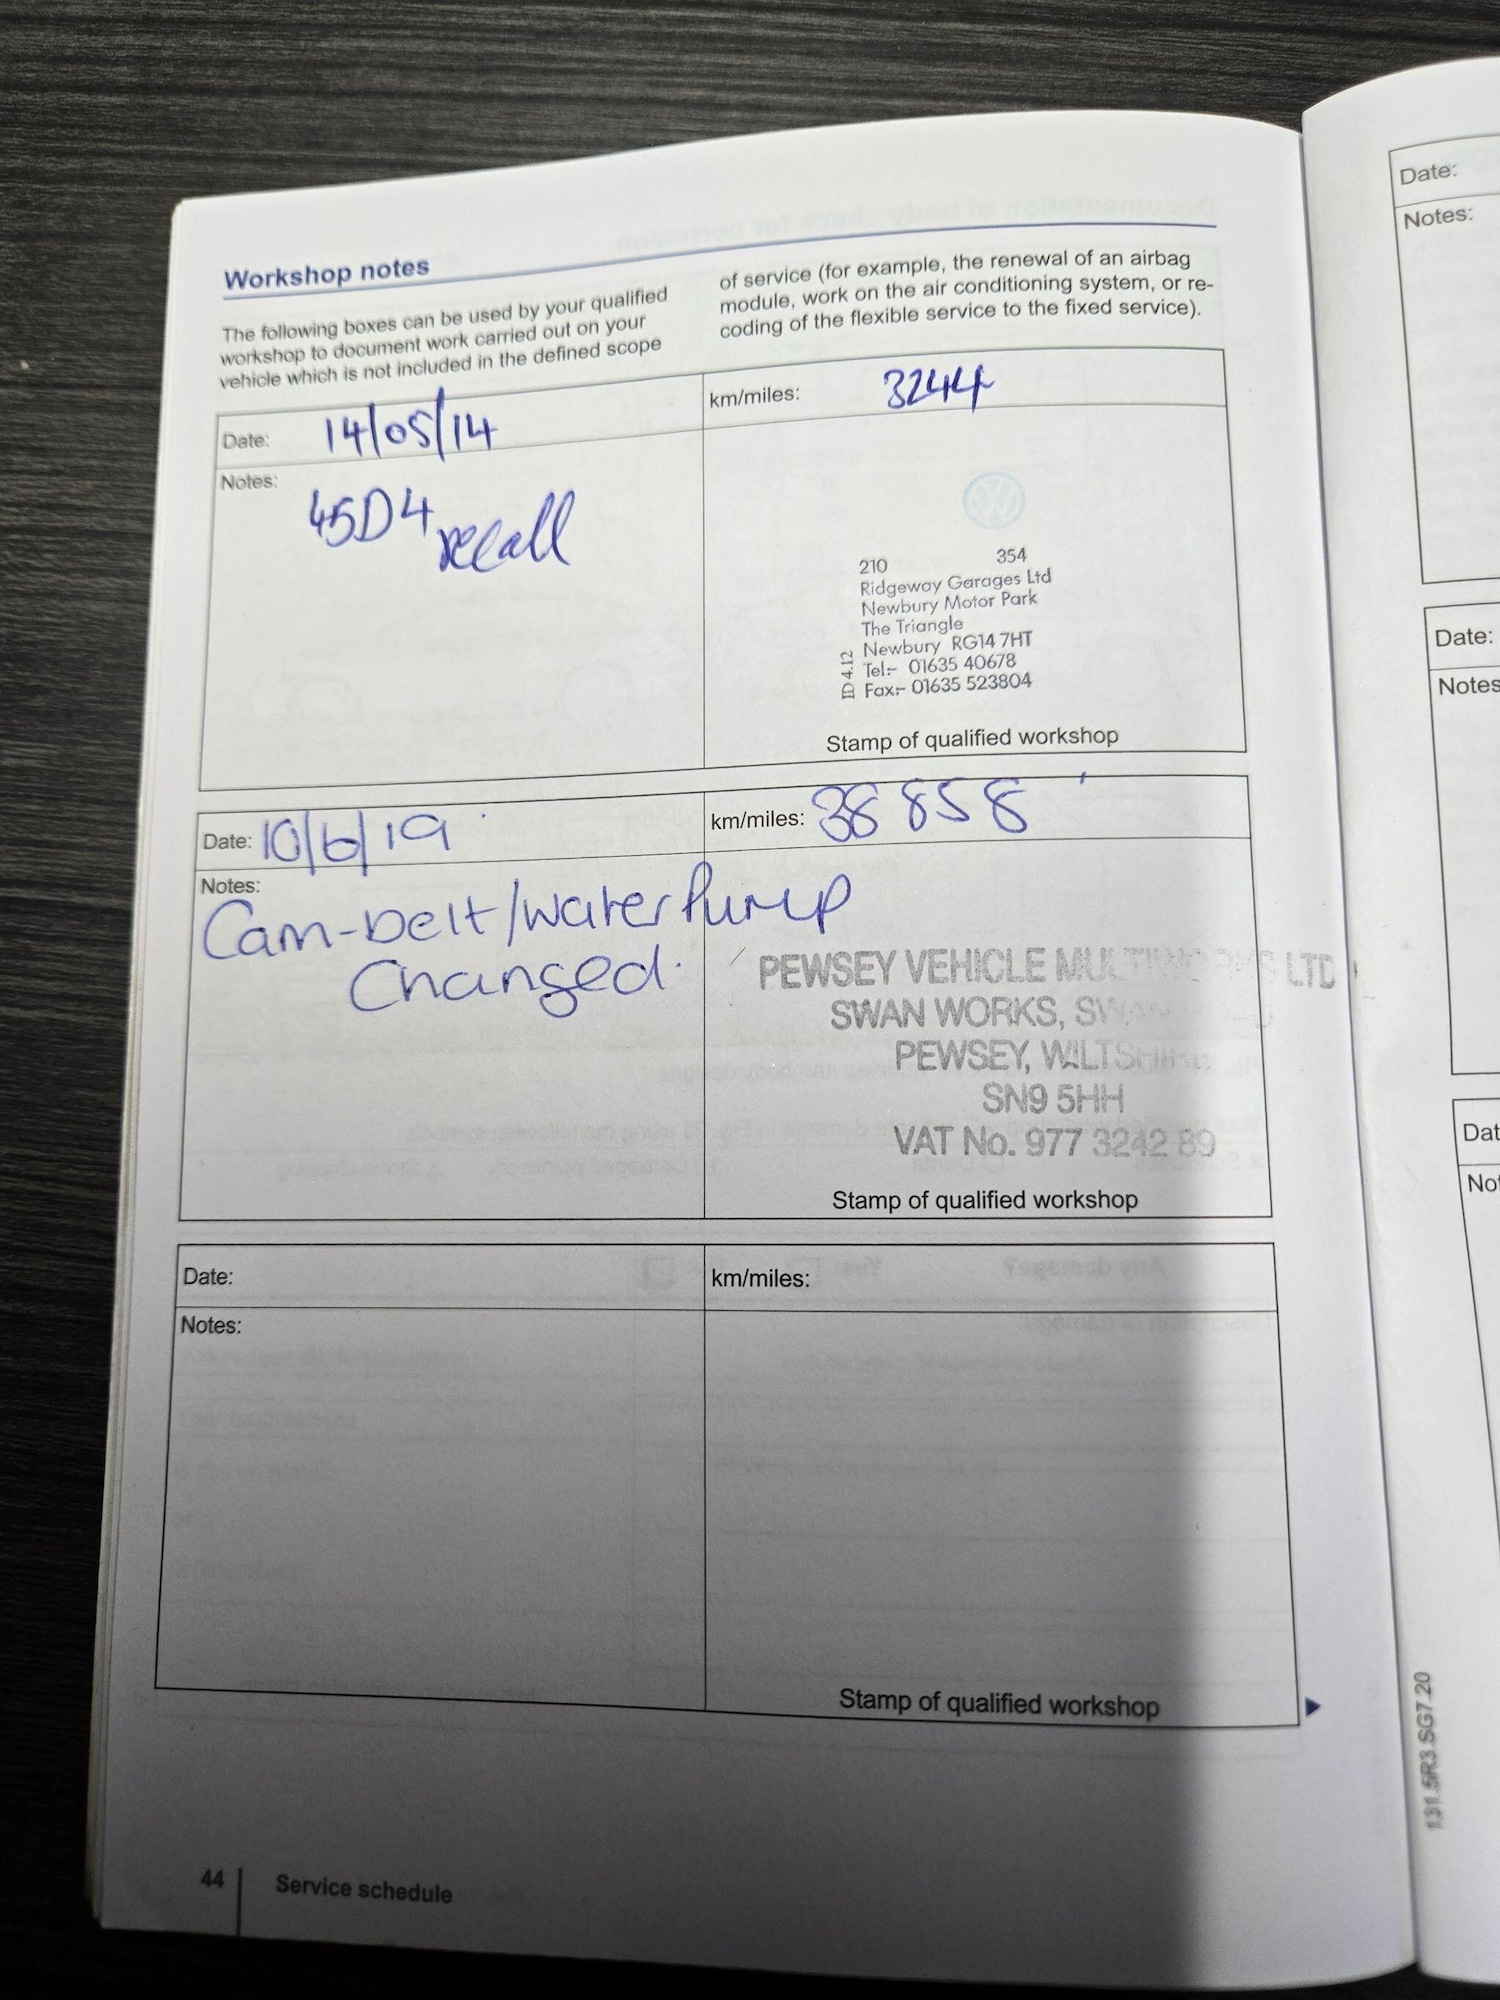 Workshop notes
The following boxes can be used by your qualified
workshop to document work carried out on your
vehicle which is not included in the defined scope
of service (for example, the renewal of an airbag
module, work on the air conditioning system, or re-
coding of the flexible service to the fixed service).
Date: 14/05/14
km/miles: 3244
Notes:
45D4 recall
210 354
Ridgeway Garages Ltd
Newbury Motor Park
The Triangle
Newbury RG14 7HT
Tel:- 01635 40678
Fax:- 01635 523804
ID 4.12
Stamp of qualified workshop
Date: 10/6/19
km/miles: 38858
Notes:
Cam-belt/water Pump
Changed.
PEWSEY VEHICLE MULTIWORKS LTD
SWAN WORKS, SWAN
PEWSEY, WILTSHIRE
SN9 5HH
VAT No. 977 3242 89
Stamp of qualified workshop
Date:
km/miles:
Notes:
Stamp of qualified workshop
44
Service schedule
Date:
Notes:
Date:
Notes
Dat
Not
131.5R3.SG7.20